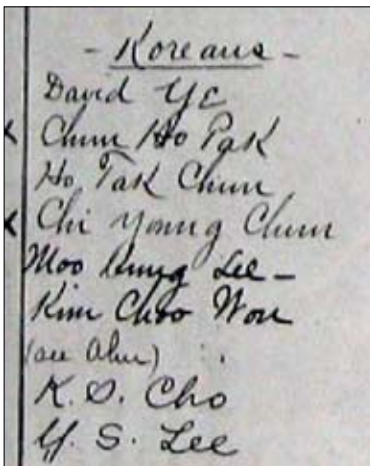 - Koreans -
David Ye
x Chun Ho Pak
Ho Tak Chun
x Chi Young Chun
Moo Lee -
Kim Choo Won
(see Ahn)
K. S. Cho
Y. S. Lee